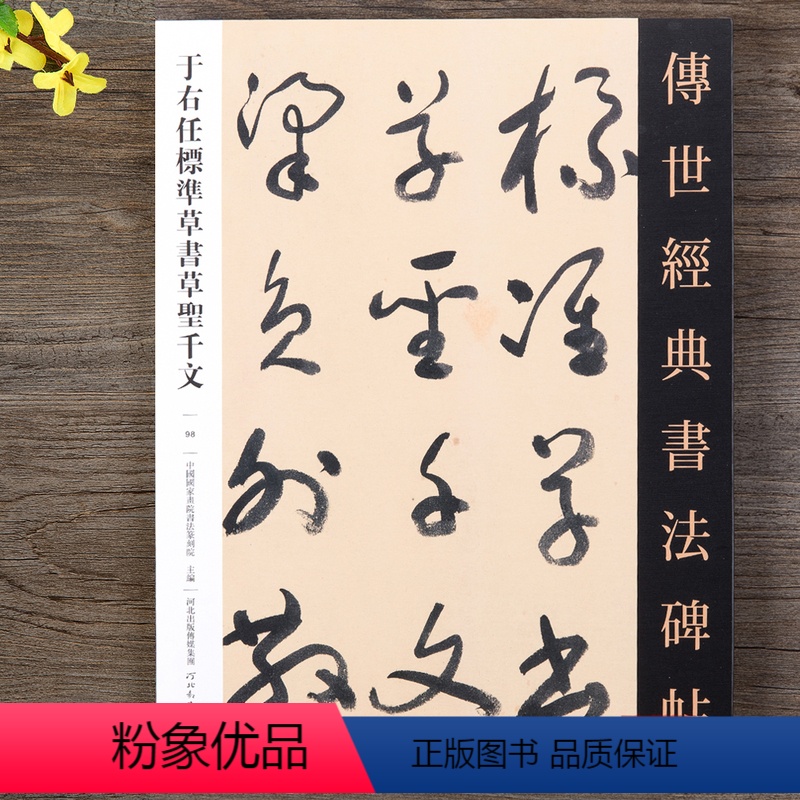 傳世經典書法碑帖
標准草書
草聖千文
梁員外散
于右任標準草書草聖千文
98
中國國家畫院書法篆刻院 主編
河北出版傳媒集團 河北
粉象优品
正版图书 品质保证